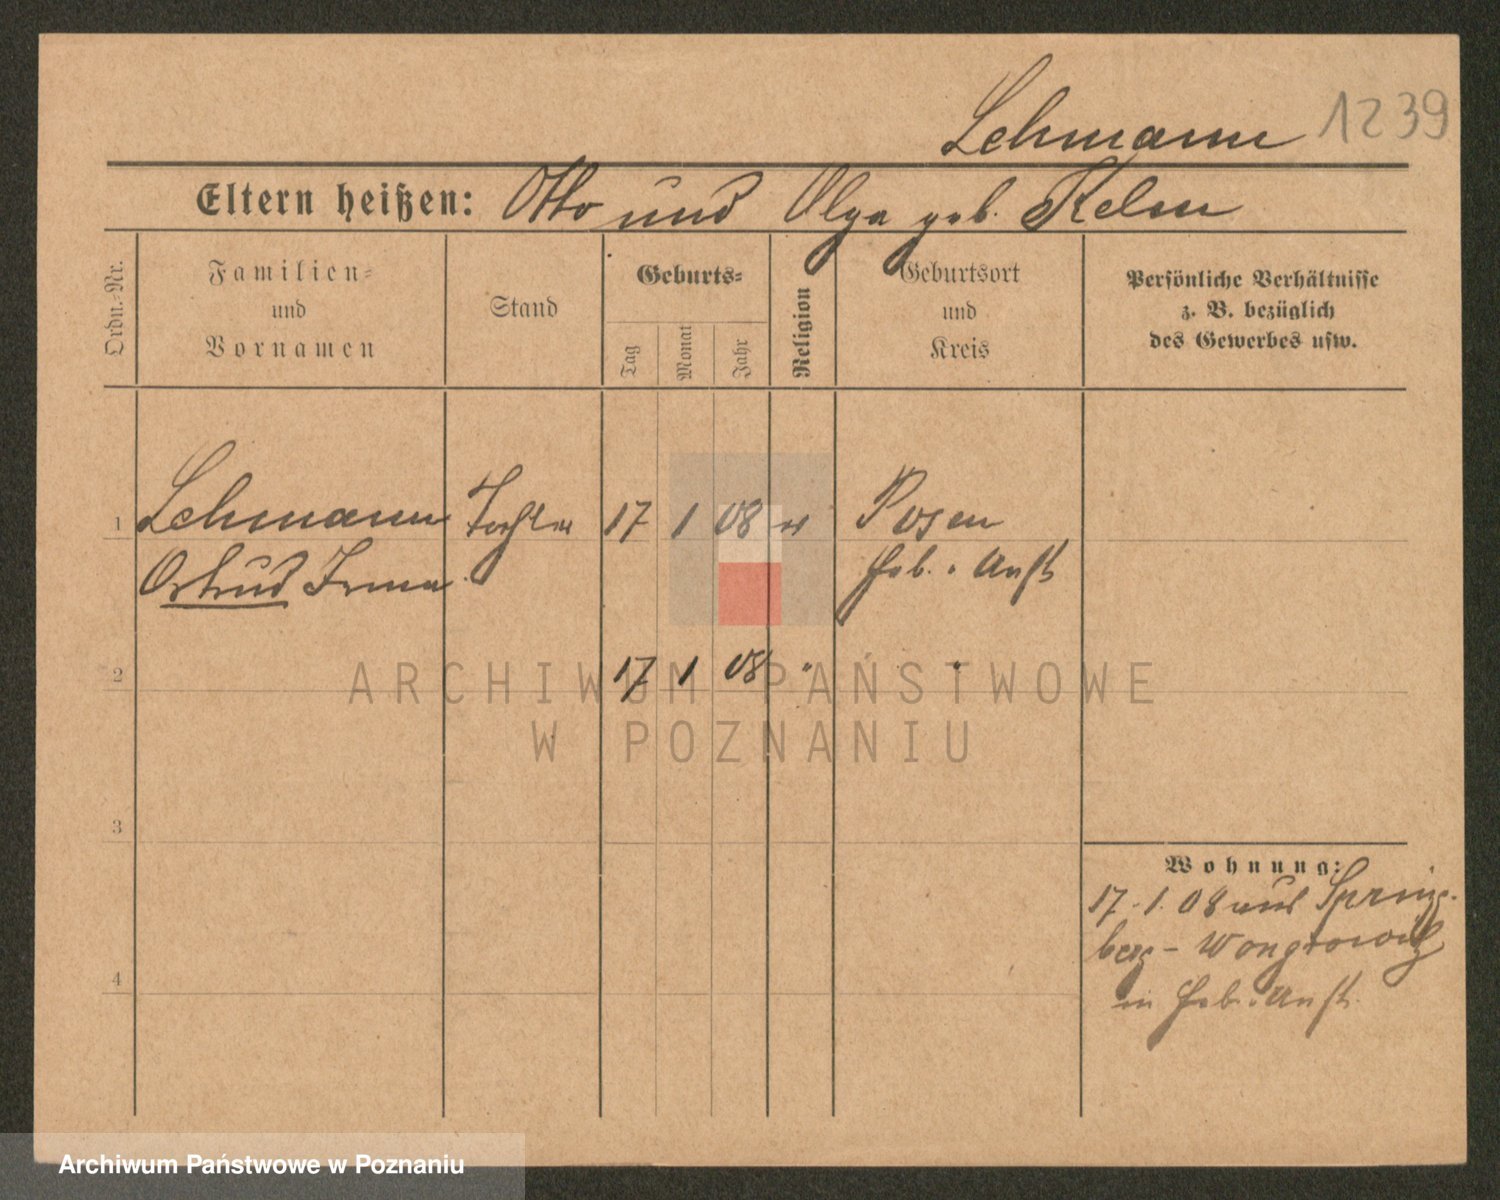 Lehmann 1239
Eltern heißen: Otto und Olga geb. Kelm
Ordn.-Nr.
Familien-
und
Vornamen
Stand
Geburts-
Tag
Monat
Jahr
Religion
Geburtsort
und
Kreis
Persönliche Verhältnisse
z. B. bezüglich
des Gewerbes usw.
1 Lehmann Tochter 17 1 08 Posen
Ortrud Irma Heb. Anst.
2 17 1 08 " "
3
4
Wohnung:
17.1.08 aus Spring-
berg - Wongrowitz
in Heb. Anst.
ARCHIWUM PAŃSTWOWE
W POZNANIU
Archiwum Państwowe w Poznaniu